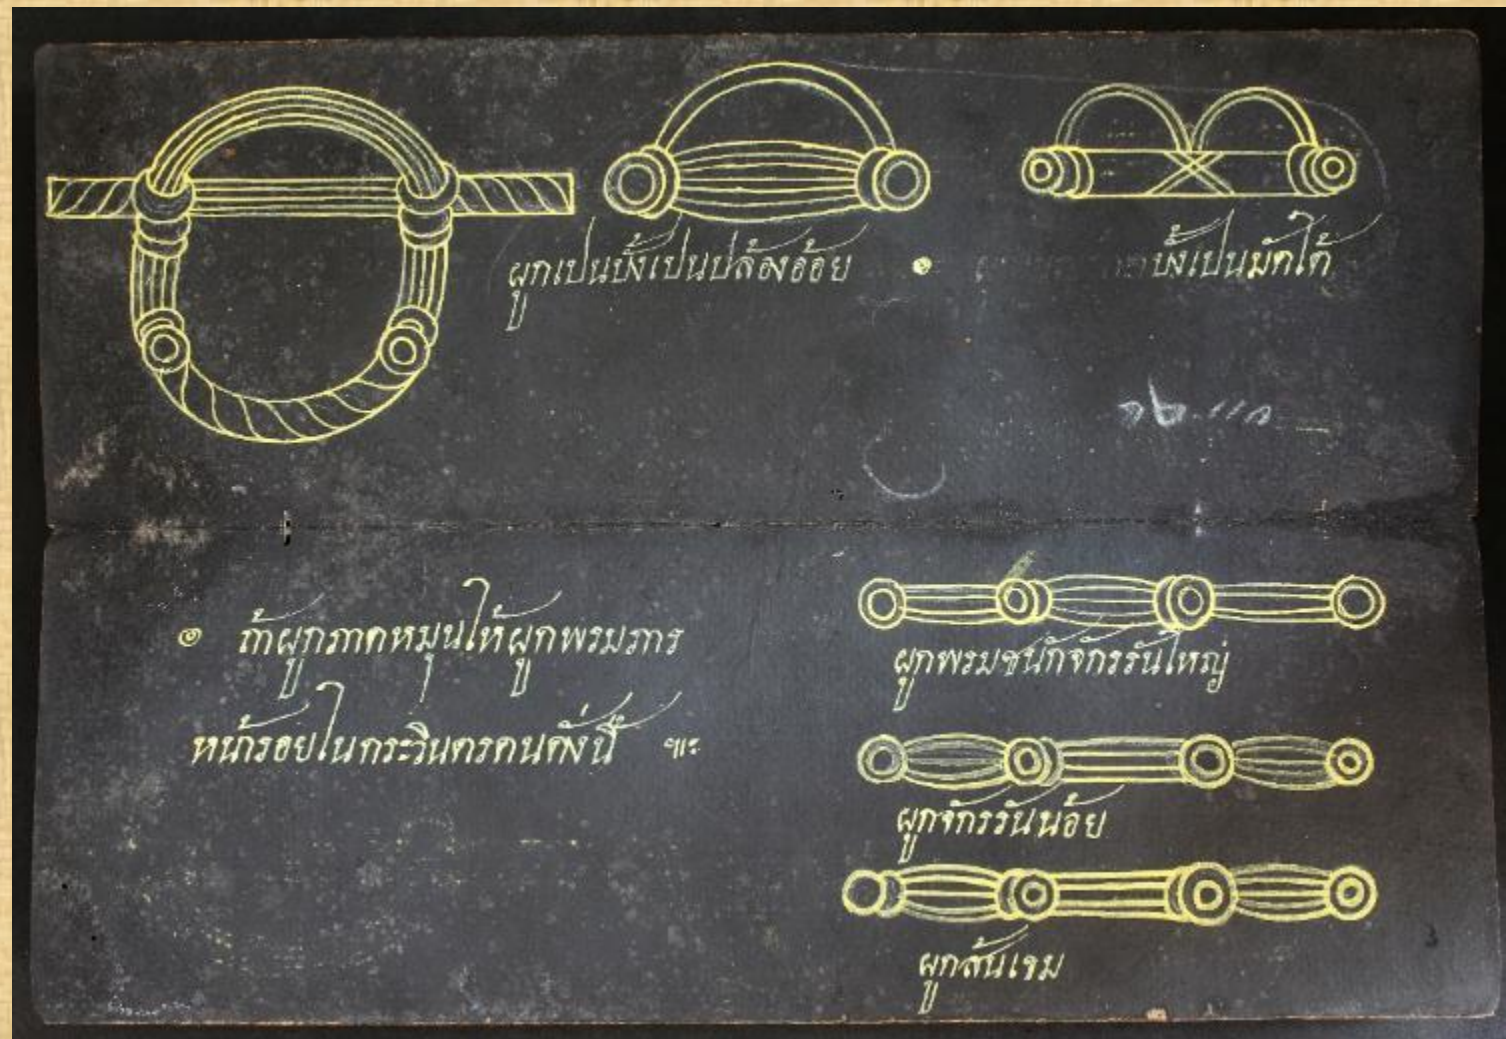 ผูกเปนบั้งเปนปล้องอ้อย ๏ บั้งเปนมัดใต้
๏ ถ้าผูกภาคหมุนให้ผูกพรมภาร
หน้ารอยในกระวินตรคนดั่งนี้ ฯะ
ผูกพรมชนักจักรรันใหญ่
ผูกจักรรันน้อย
ผูกส้นเขม